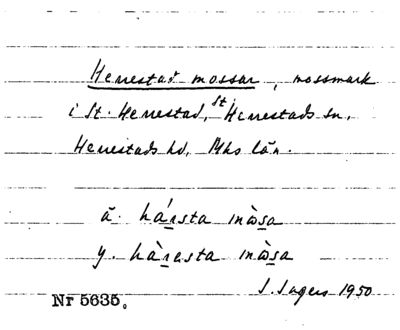 Herrestad mossar, mossmark
i St. Herrestad, St Herrestads sn,
Herrestads hd, Mhs län.
ä. hársta mòsa
y. hàresta mòsa
S. Ingers 1950
Nr 5635.